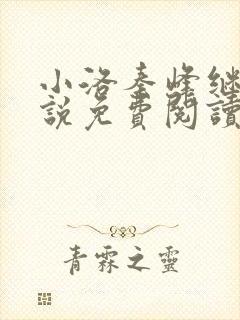 小洛秦峰继
說免費閱讀
青霖之靈